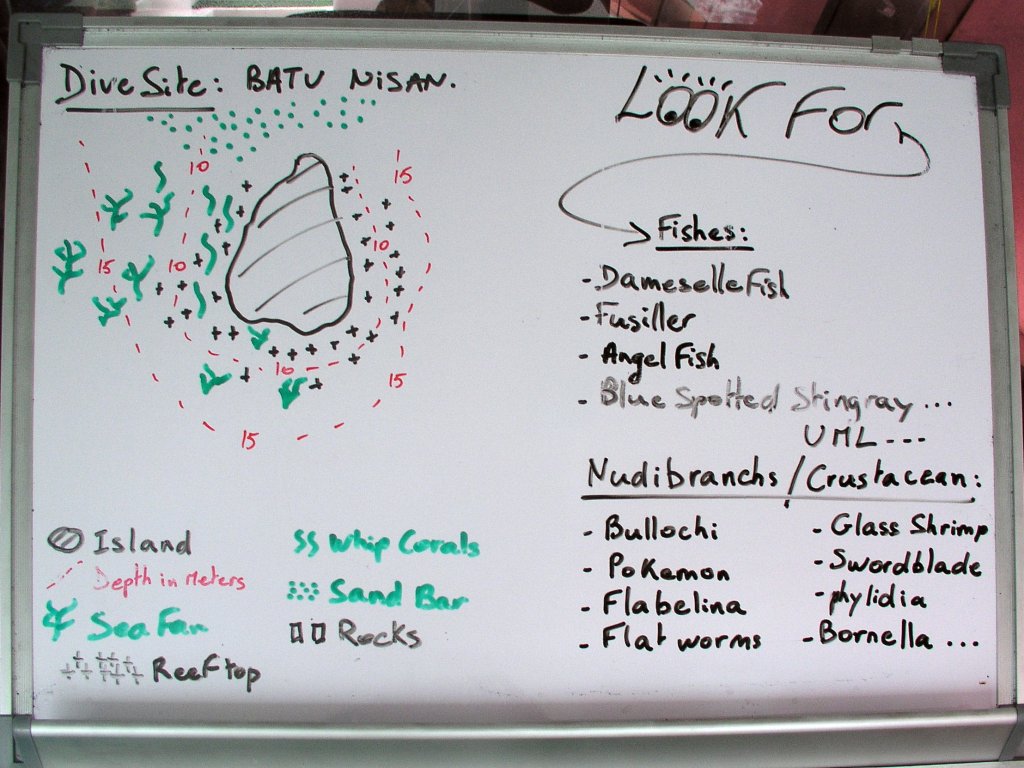 Dive Site: BATU NiSAN.
10
15
15
10
10
10
15
15
LOOK For
Fishes:
- Dameselle Fish
- Fusiller
- Angel Fish
- Blue Spotted Stingray ...
UML ---
Nudibranchs / Crustacean:
- Bullochi
- Pokemon
- Flabelina
- Flat worms
- Glass Shrimp
- Swordblade
- phylidia
- Bornella ...
Island
Depth in Meters
Sea Fan
Reef top
Whip Corals
Sand Bar
Rocks